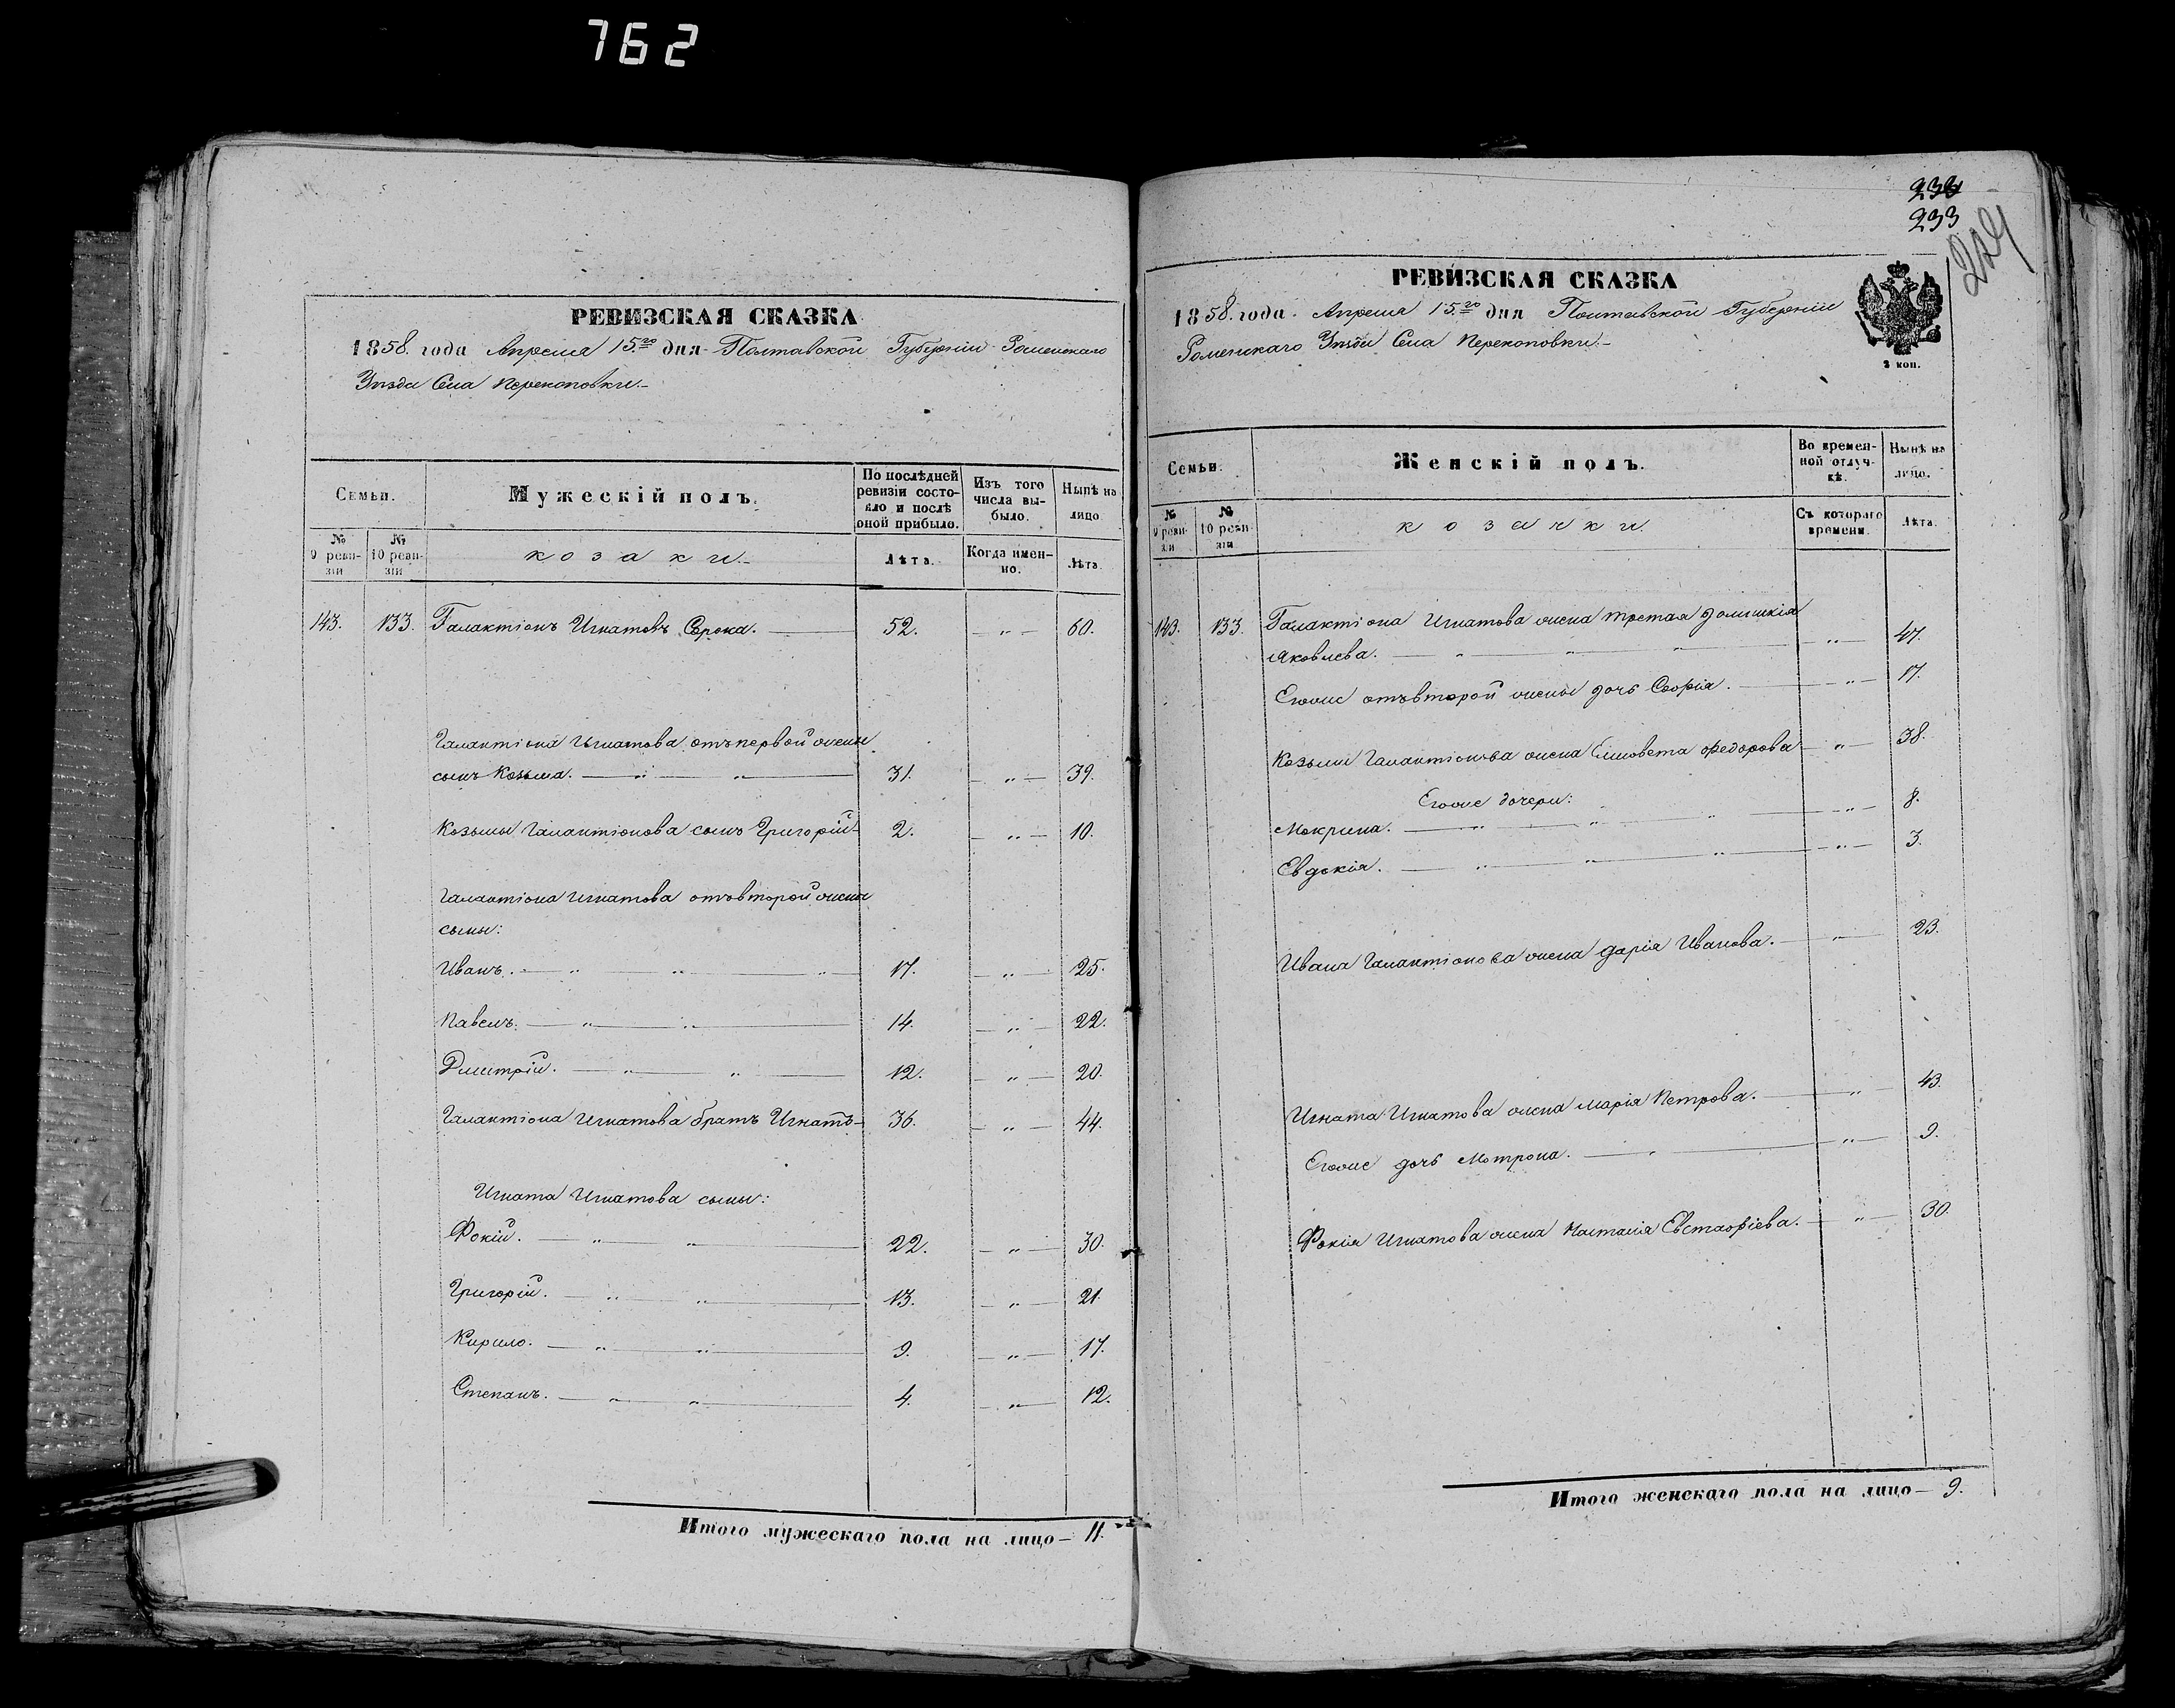 762
РЕВИЗСКАЯ СКАЗКА
1858. года Апреля 15.го дня Полтавской Губерніи Роменскаго
Уезда Села Перекоповки.
Семьи.
Мужескій полъ.
По послѣдней ревизіи состояло и послѣ оной прибыло.
Изъ того числа выбыло.
Нынѣ на лицо
№ 9 ревизіи
№ 10 ревизіи
козаки.
Лѣта.
Когда именно.
Лѣта
143. 133. Галактіонъ Игнатовъ Сорока. 52. " 60.
Галактіона Игнатова отъ первой жены
сынъ Козьма. " " 31. " 39.
Козьмы Галактіонова сынъ Григорій 2. " 10.
Галактіона Игнатова отъ второй жены
сыны:
Иванъ. " " " 17. " 25.
Павелъ. " " 14. " 22.
Дмитрій. " " 12. " 20.
Галактіона Игнатова братъ Игнатъ 36. " 44.
Игната Игнатова сыны:
Фокій. " " 22. " 30.
Григорій. " " 13. " 21.
Кирило. " " 9. " 17.
Степанъ. " " 4. " 12.
Итого мужескаго пола на лицо — 11.
233
229
РЕВИЗСКАЯ СКАЗКА
1858. года Апреля 15.го дня Полтавской Губерніи
Роменскаго Уезда Села Перекоповки.
2 коп.
Семьи.
Женскій полъ.
Во временной отлучкѣ.
Нынѣ на лицо.
№ 9 ревизіи
№ 10 ревизіи
козачки
Съ котораго времени.
Лѣта.
143. 133. Галактіона Игнатова жена третая Домникія
Яковлева. " " " " 47.
Егоже отъ второй жены дочь Софія. " 17.
Козьмы Галактіонова жена Елисовета Федорова " 38.
Егоже дочери:
Мокрина. " " " " 8.
Евдокія. " " " " 3.
Ивана Галактіонова жена Дарія Иванова. " 23.
Игната Игнатова жена Марія Петрова. " 43.
Егоже дочь Мотрона. " " 9.
Фокія Игнатова жена Настасія Евстафіева. " 30.
Итого женскаго пола на лицо — 9.